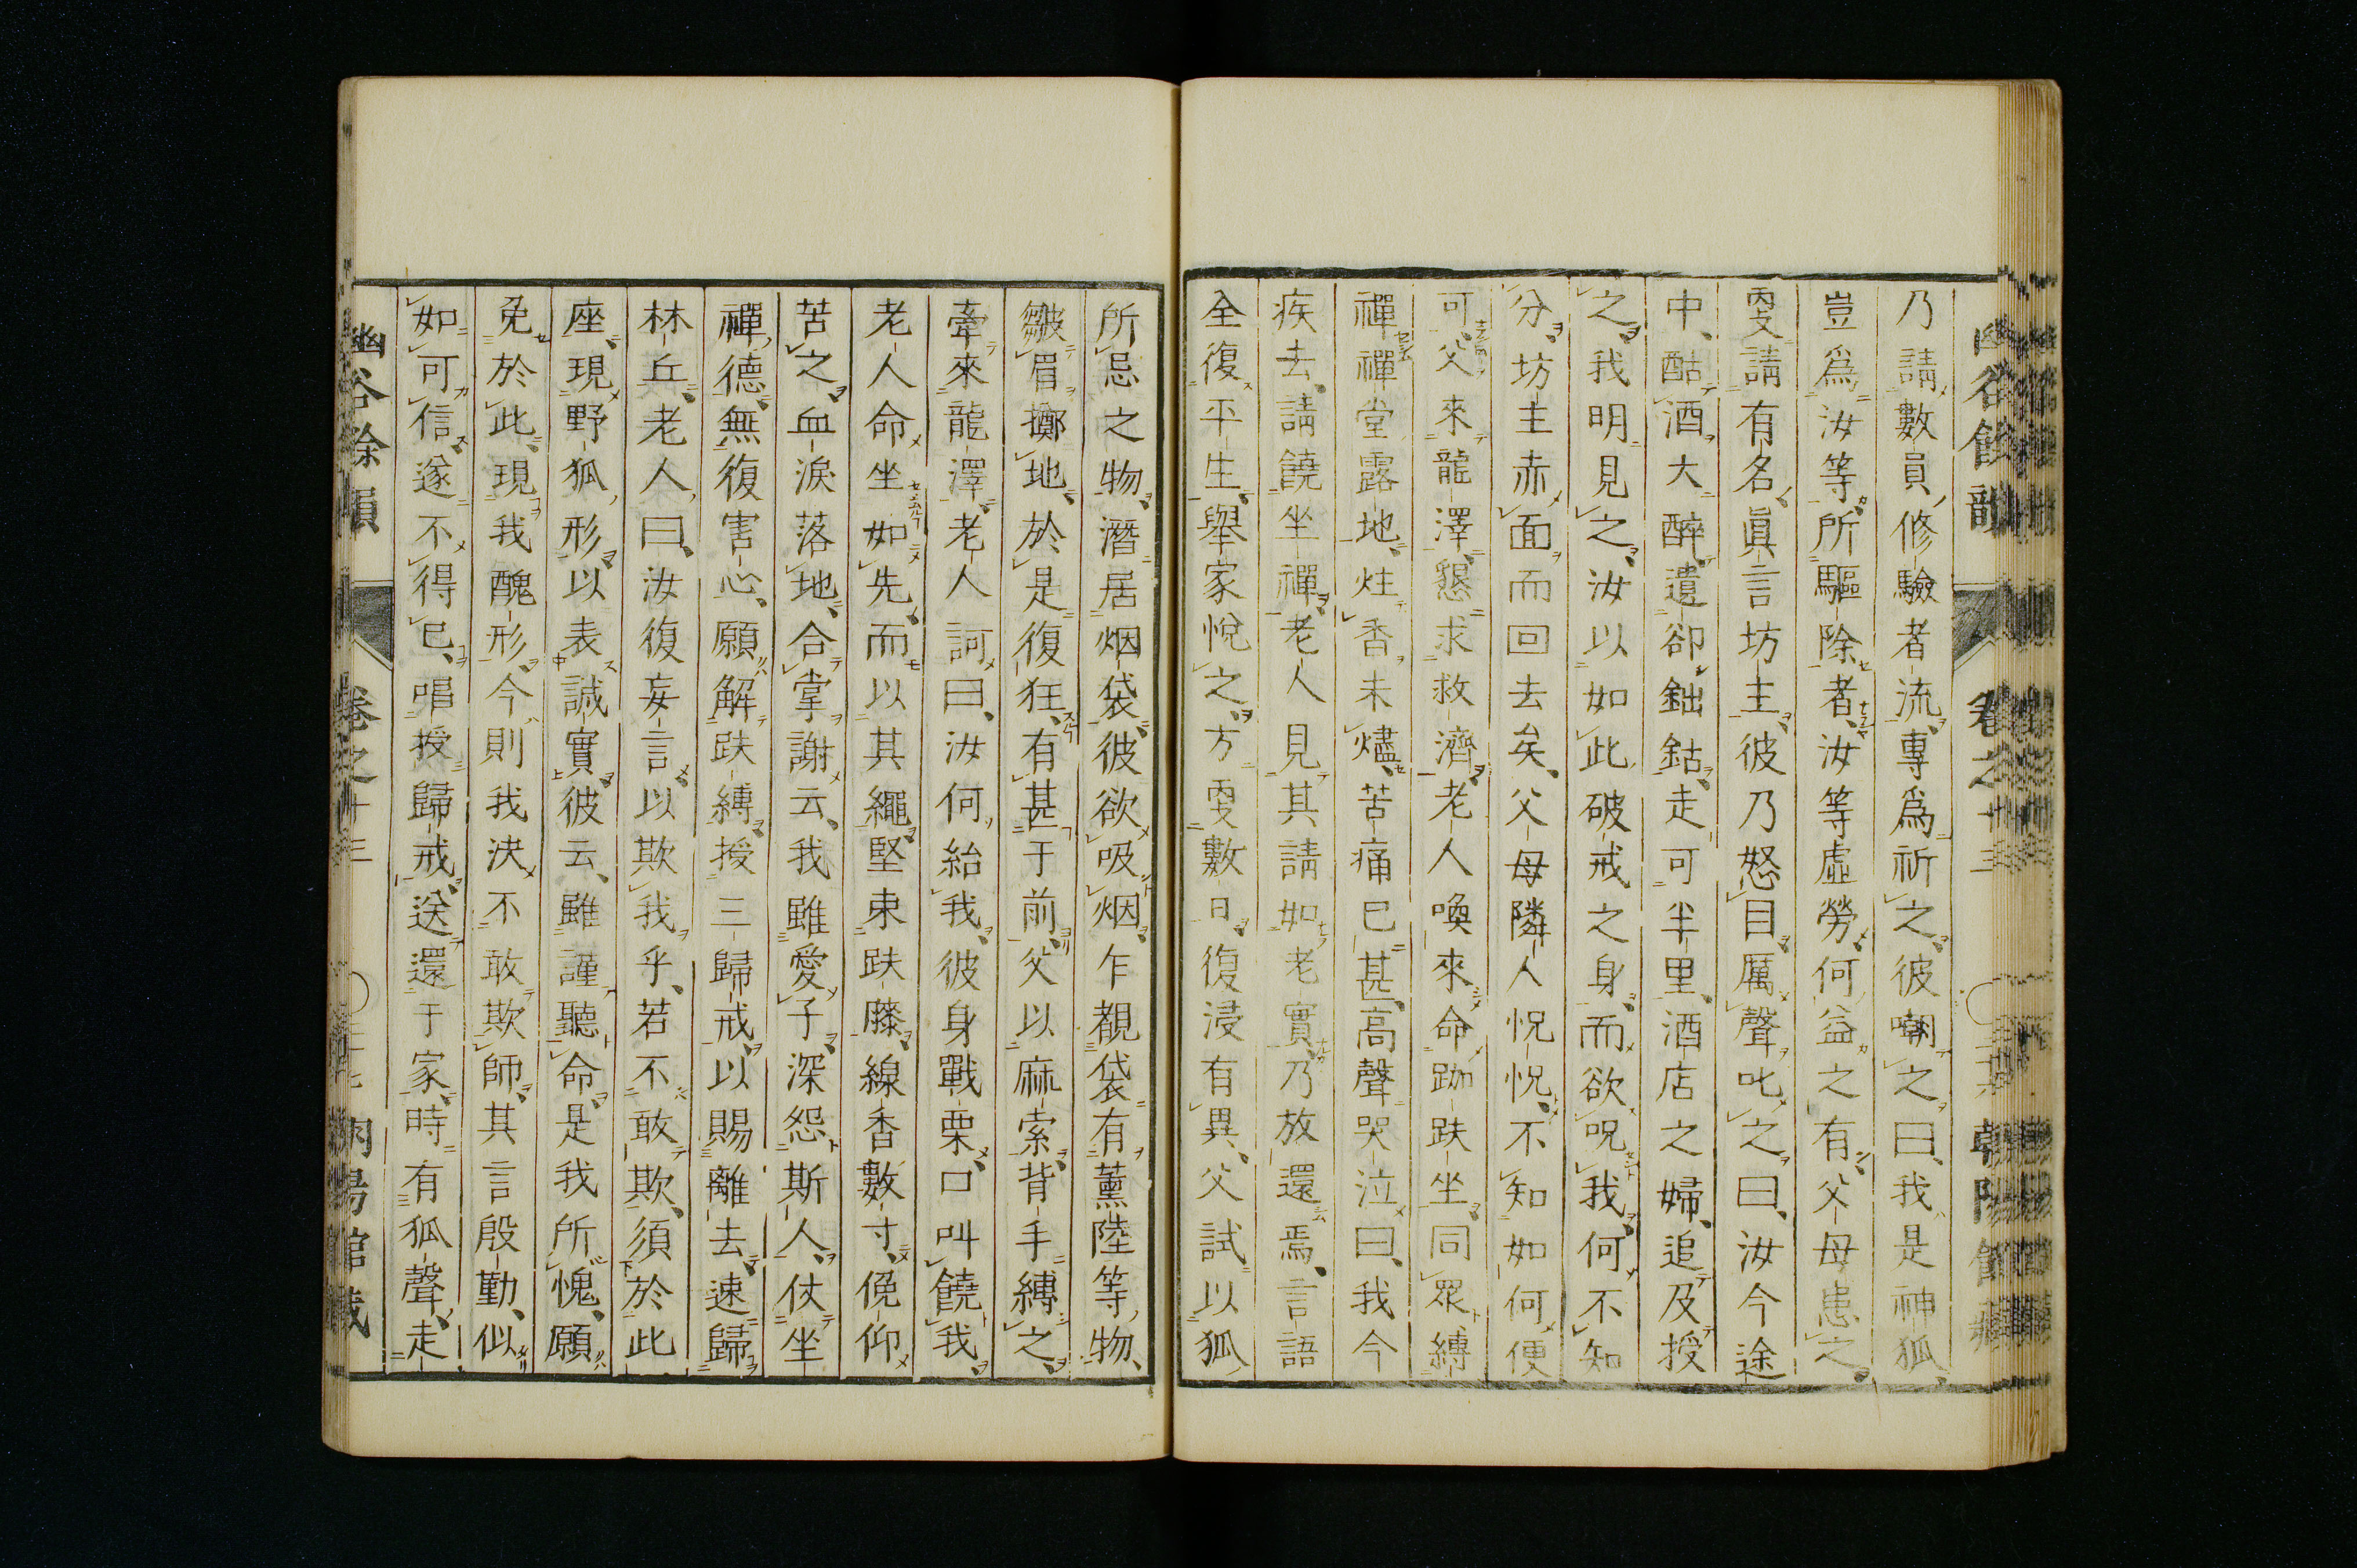 乃請數員修驗者流專爲祈之彼嘲之曰我是神狐
豈爲汝等所驅除者汝等虛勞何益之有父母患之
更請有名眞言坊主彼乃怒目厲聲叱之曰汝今途
中酤酒大醉遺卻鈯鈷走可半里酒店之婦追及授
之我明見之汝以如此破戒之身而欲呪我何不知
分坊主赤面而回去矣父母隣人怳怳不知如何便
可父來龍澤懇求救濟老人喚來命跏趺坐同眾縛
禪禪堂露地炷香未燼苦痛已甚高聲哭泣曰我今
疾去請饒坐禪老人見其請如老實乃放還焉言語
全復平生舉家悅之方更數日復浸有異父試以狐
所忌之物潛居烟袋彼欲吸烟乍覩袋有薰陸等物
皺眉擲地於是復狂有甚于前父以麻索背手縛之
牽來龍澤老人訶曰汝何紿我彼身戰栗口叫饒我
老人命坐如先而以其繩堅束趺藤線香數寸俛仰
苦之血淚落地合掌謝云我雖愛子深怨斯人仗坐
禪德無復害心願解趺縛授三歸戒以賜離去速歸
林丘老人曰汝復妄言以欺我乎若不敢欺須於此
座現野狐形以表誠實彼云雖謹聽命是我所愧願
免於此現我醜形今則我決不敢欺師其言殷勤似
如可信遂不得已唱授歸戒送還于家時有狐聲走
幽谷餘韻 卷之十三